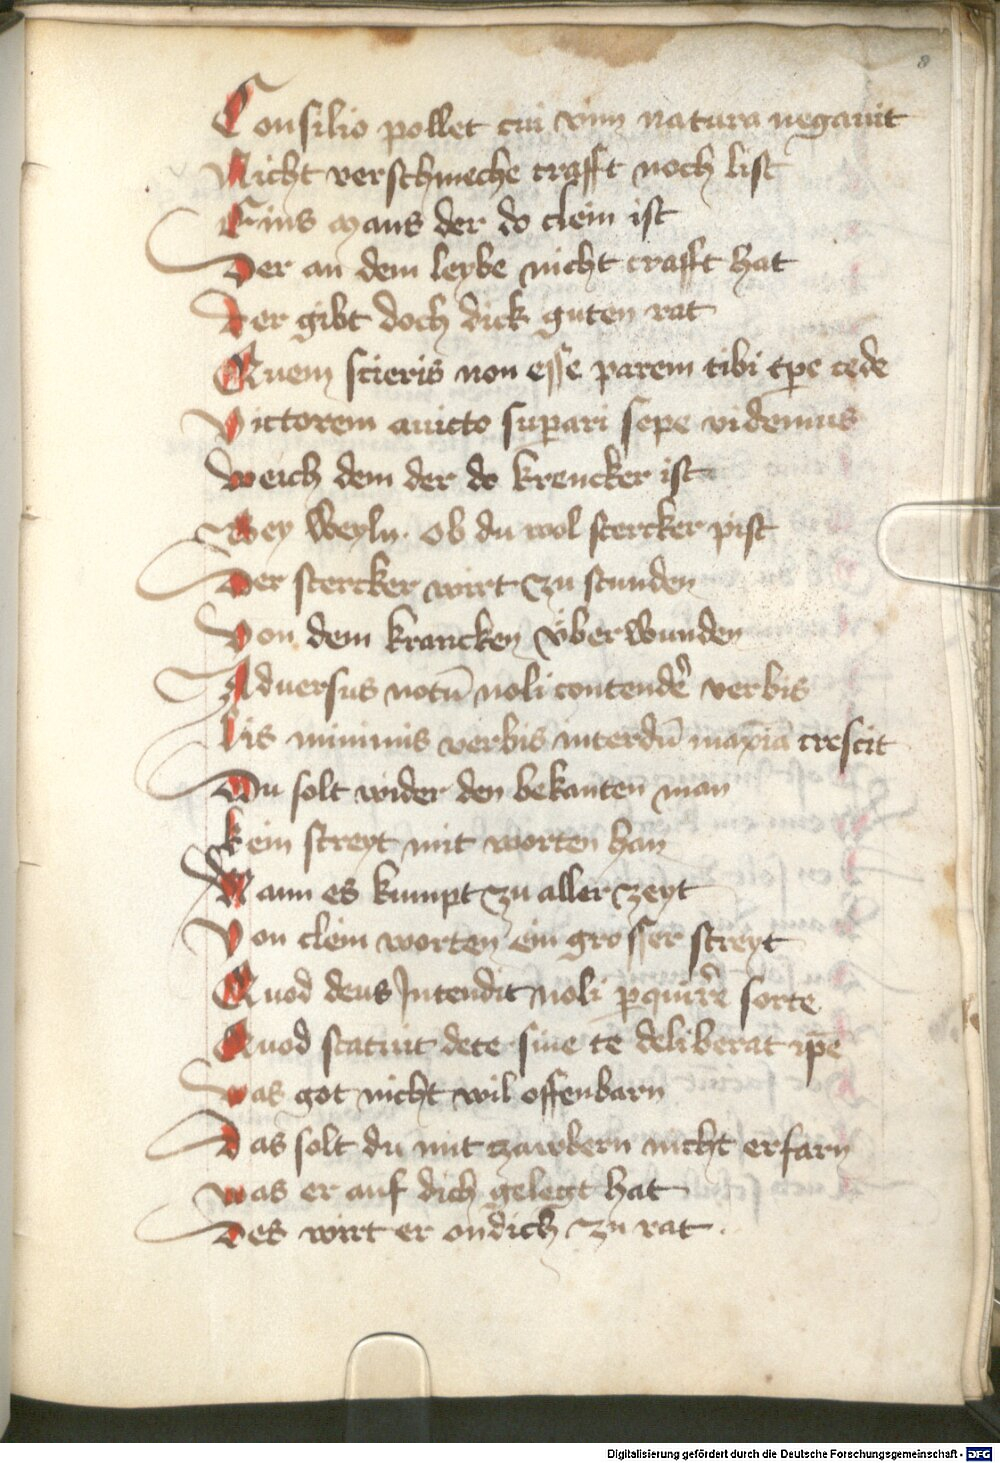 8
Consilio pollet cui vim natura negauit
Nicht verschmeche crafft noch list
Eins mans der do clein ist
Der an dem leybe nicht crafft hat
Der gibt doch dick guten rat
Quem scieris non esse parem tibi tpe cede
Victorem auicto supari sepe videmus
Weich dem der do krencker ist
Bey Weyln. ob du wol stercker pist
Der stercker wirt zu stunden
Von dem krancken überwunden
Aduersus notū noli contende verbis
Lis minimis verbis interdū maxīa crescit
Du solt wider den bekanten man
kein streyt mit worten han
Wann es kumpt zu aller zeyt
Von clein worten ein grosser streyt
Quod deus Intendit noli pquire sorte
Quod statuit dete sine te deliberat ipē
Was got nicht wil offenbarn
Das solt du mit zawbern nicht erfarn
was er auf dich gelegt hat
Des wirt er ondich zu rat.
Digitalisierung gefördert durch die Deutsche Forschungsgemeinschaft - DFG